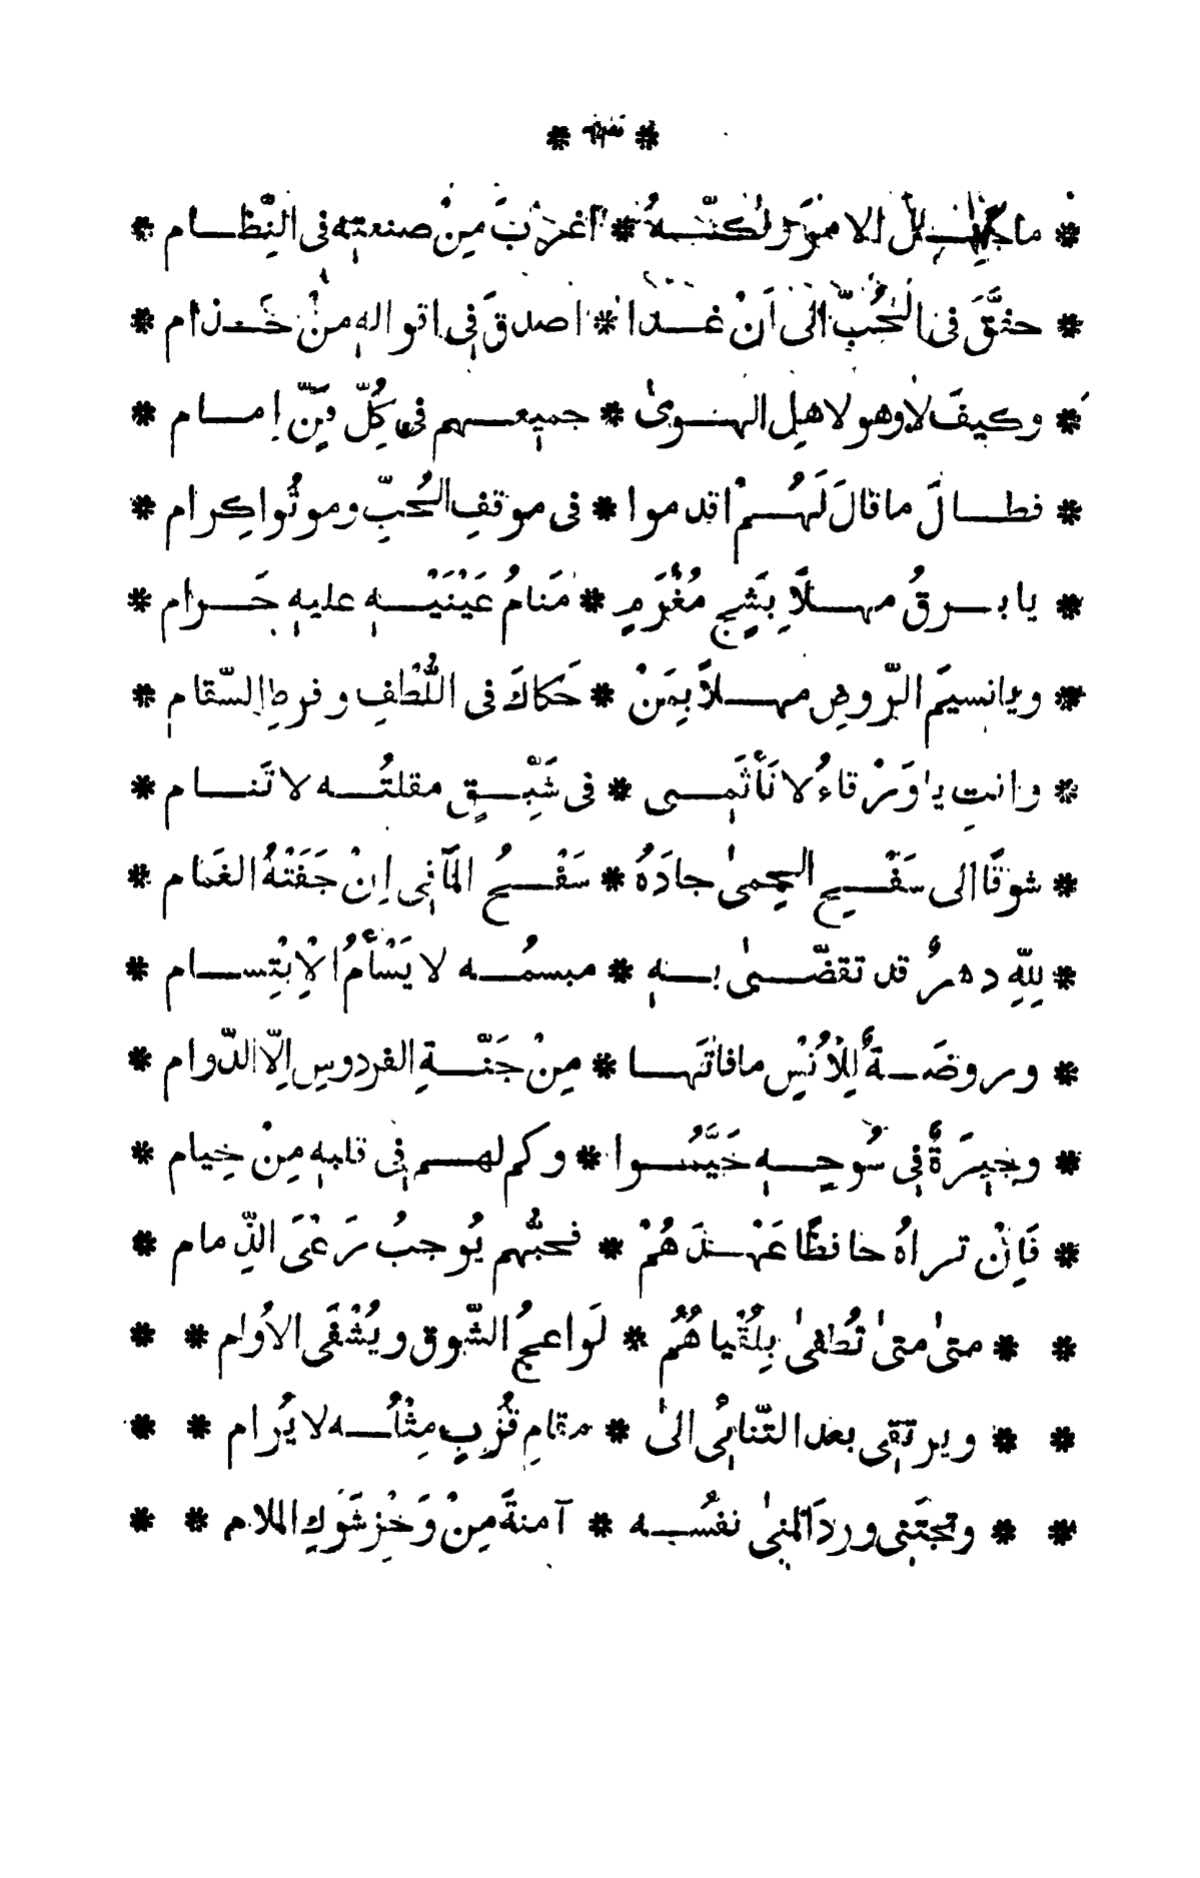 * ما جَهِلَ الامورَ ولكنّهُ * اَغْرَبَ مِنْ صنعتِهِ فى النِّظام *
* حقَّقَ فى الحُبِّ الى اَنْ غدا * اصدقَ فِى اقوالهِ منْ خَذام *
* وكيفَ لا وهو لاهلِ الهوىٰ * جميعِهم فى كِلِّ فَنٍّ اِمام *
* فطالَ ما قالَ لَهُمْ اقدموا * فى موقفِ الحُبِّ وموتُوا كِرام *
* يا برقُ مهلاً بِشَجٍ مُغْرَمٍ * مَنامُ عَيْنَيْهِ عليهِ حَرام *
* ويا نسيمَ الرّوضِ مهلاً بِمَنْ * حَكاكَ فى اللُّطْفِ وفرطِ السّقام *
* وانتِ يا وَرْقاءُ لا تَأْثَمِى * فى شَيِّقٍ مقلتُه لا تَنام *
* شوقًا الى سَفْحِ الحِمىٰ جادَهُ * سَفْحُ المَآقِى اِنْ جَفَتْهُ الغَمام *
* لِلّهِ دهرٌ قد تقضّىٰ بهِ * مبسمُه لا يَسْأَمُ الْاِبْتِسام *
* وروضَةٌ لِلْاُنْسِ ما فاتَها * مِنْ جَنّةِ الفردوسِ اِلّا الدّوام *
* وجِيرَةٌ فِى سُوحِهِ خَيَّمُوا * وكم لهم فِى قلبهِ مِنْ خِيام *
* فَاِنْ تراهُ حافظًا عَهْدَهُمْ * فحبُّهم يُوجبُ رَعْىَ الذِّمام *
* * متىٰ متىٰ تُطفىٰ بِلُقْياهُمُ * لَواعجُ الشّوق ويُشْفَى الاُوام * *
* * ويرتقِى بعد التّنائِى الىٰ * مقامِ قُرْبٍ مِثْلُه لا يُرام * *
* * وتجتَنِى وردَ المنىٰ نفسُه * آمنةً مِنْ وَخْزِ شَوكِ الملام * *